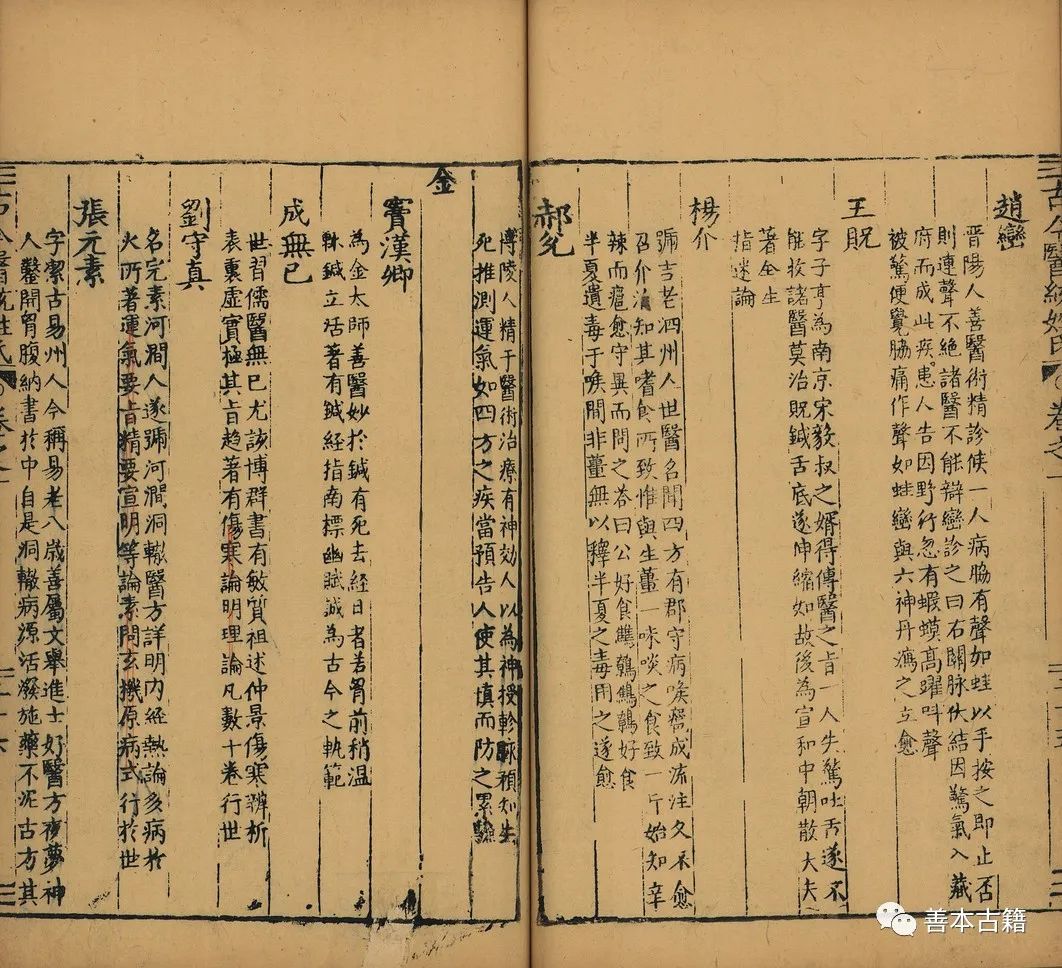 古今醫統姓氏 卷之一
趙巒
晋陽人善醫術精診候一人病脇有聲如蛙以手按之即止否
則連聲不絕諸醫不能辯巒診之曰右關脉伏結因驚氣入藏
府而成此疾患人告因野行忽有蝦蟆高躍叫聲
被驚便覺脇痛作聲如蛙巒與六神丹瀉之立愈
王貺
字子亨為南京宋毅叔之婿得傳醫之旨一人失驚吐舌遂不
能收諸醫莫治貺鍼舌底遂伸縮如故後為宣和中朝散大夫
著全生
指迷論
楊介
號吉老泗州人世醫名聞四方有郡守病喉癰成流注久不愈
召介治知其嗜食所致惟與生薑一味啖之食致一斤始知辛
辣而瘡愈守異而問之答曰公好食鷓鴣鷓好食
半夏遺毒于喉間非薑無以釋半夏之毒用之遂愈
郝允
博陵人精于醫術治療有神効人以為神授軫脉預知生
死推測運氣如四方之疾當預告人使其慎而防之累驗
金
竇漢卿
為金太師善醫妙於鍼有死去經日者若胷前稍溫
輒鍼立活著有鍼經指南標幽賦誠為古今之軌範
成無已
世習儒醫無已尤該博群書有敏質祖述仲景傷寒辨析
表裏虛實極其旨趋著有傷寒論明理論凡數十卷行世
劉守真
名完素河澗人遂號河澗洞轍醫方詳明內經熱論多病於
火所著運氣要旨精要宣明等論素問玄機原病式行於世
張元素
字潔古易州人今稱易老八歲善屬文舉進士好醫方夜夢神
人鑿開胷腹納書於中自是洞轍病源活潑施藥不泥古方其
古今醫統姓氏 卷之一 二十六
善本古籍